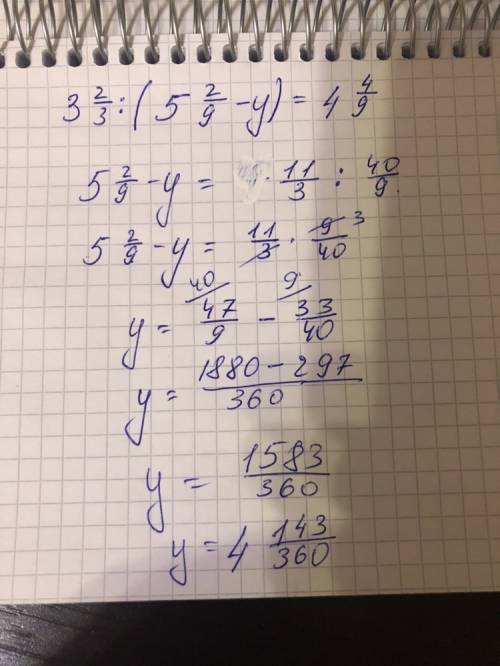 3 2/3 : ( 5 2/9 - y) = 4 4/9
5 2/9 - y = 11/3 : 40/9
5 2/9 - y = 11/3 · 9/40 3
y = 47/9 40 - 33/40 9
y = 1880 - 297/360
y = 1583/360
y = 4 143/360